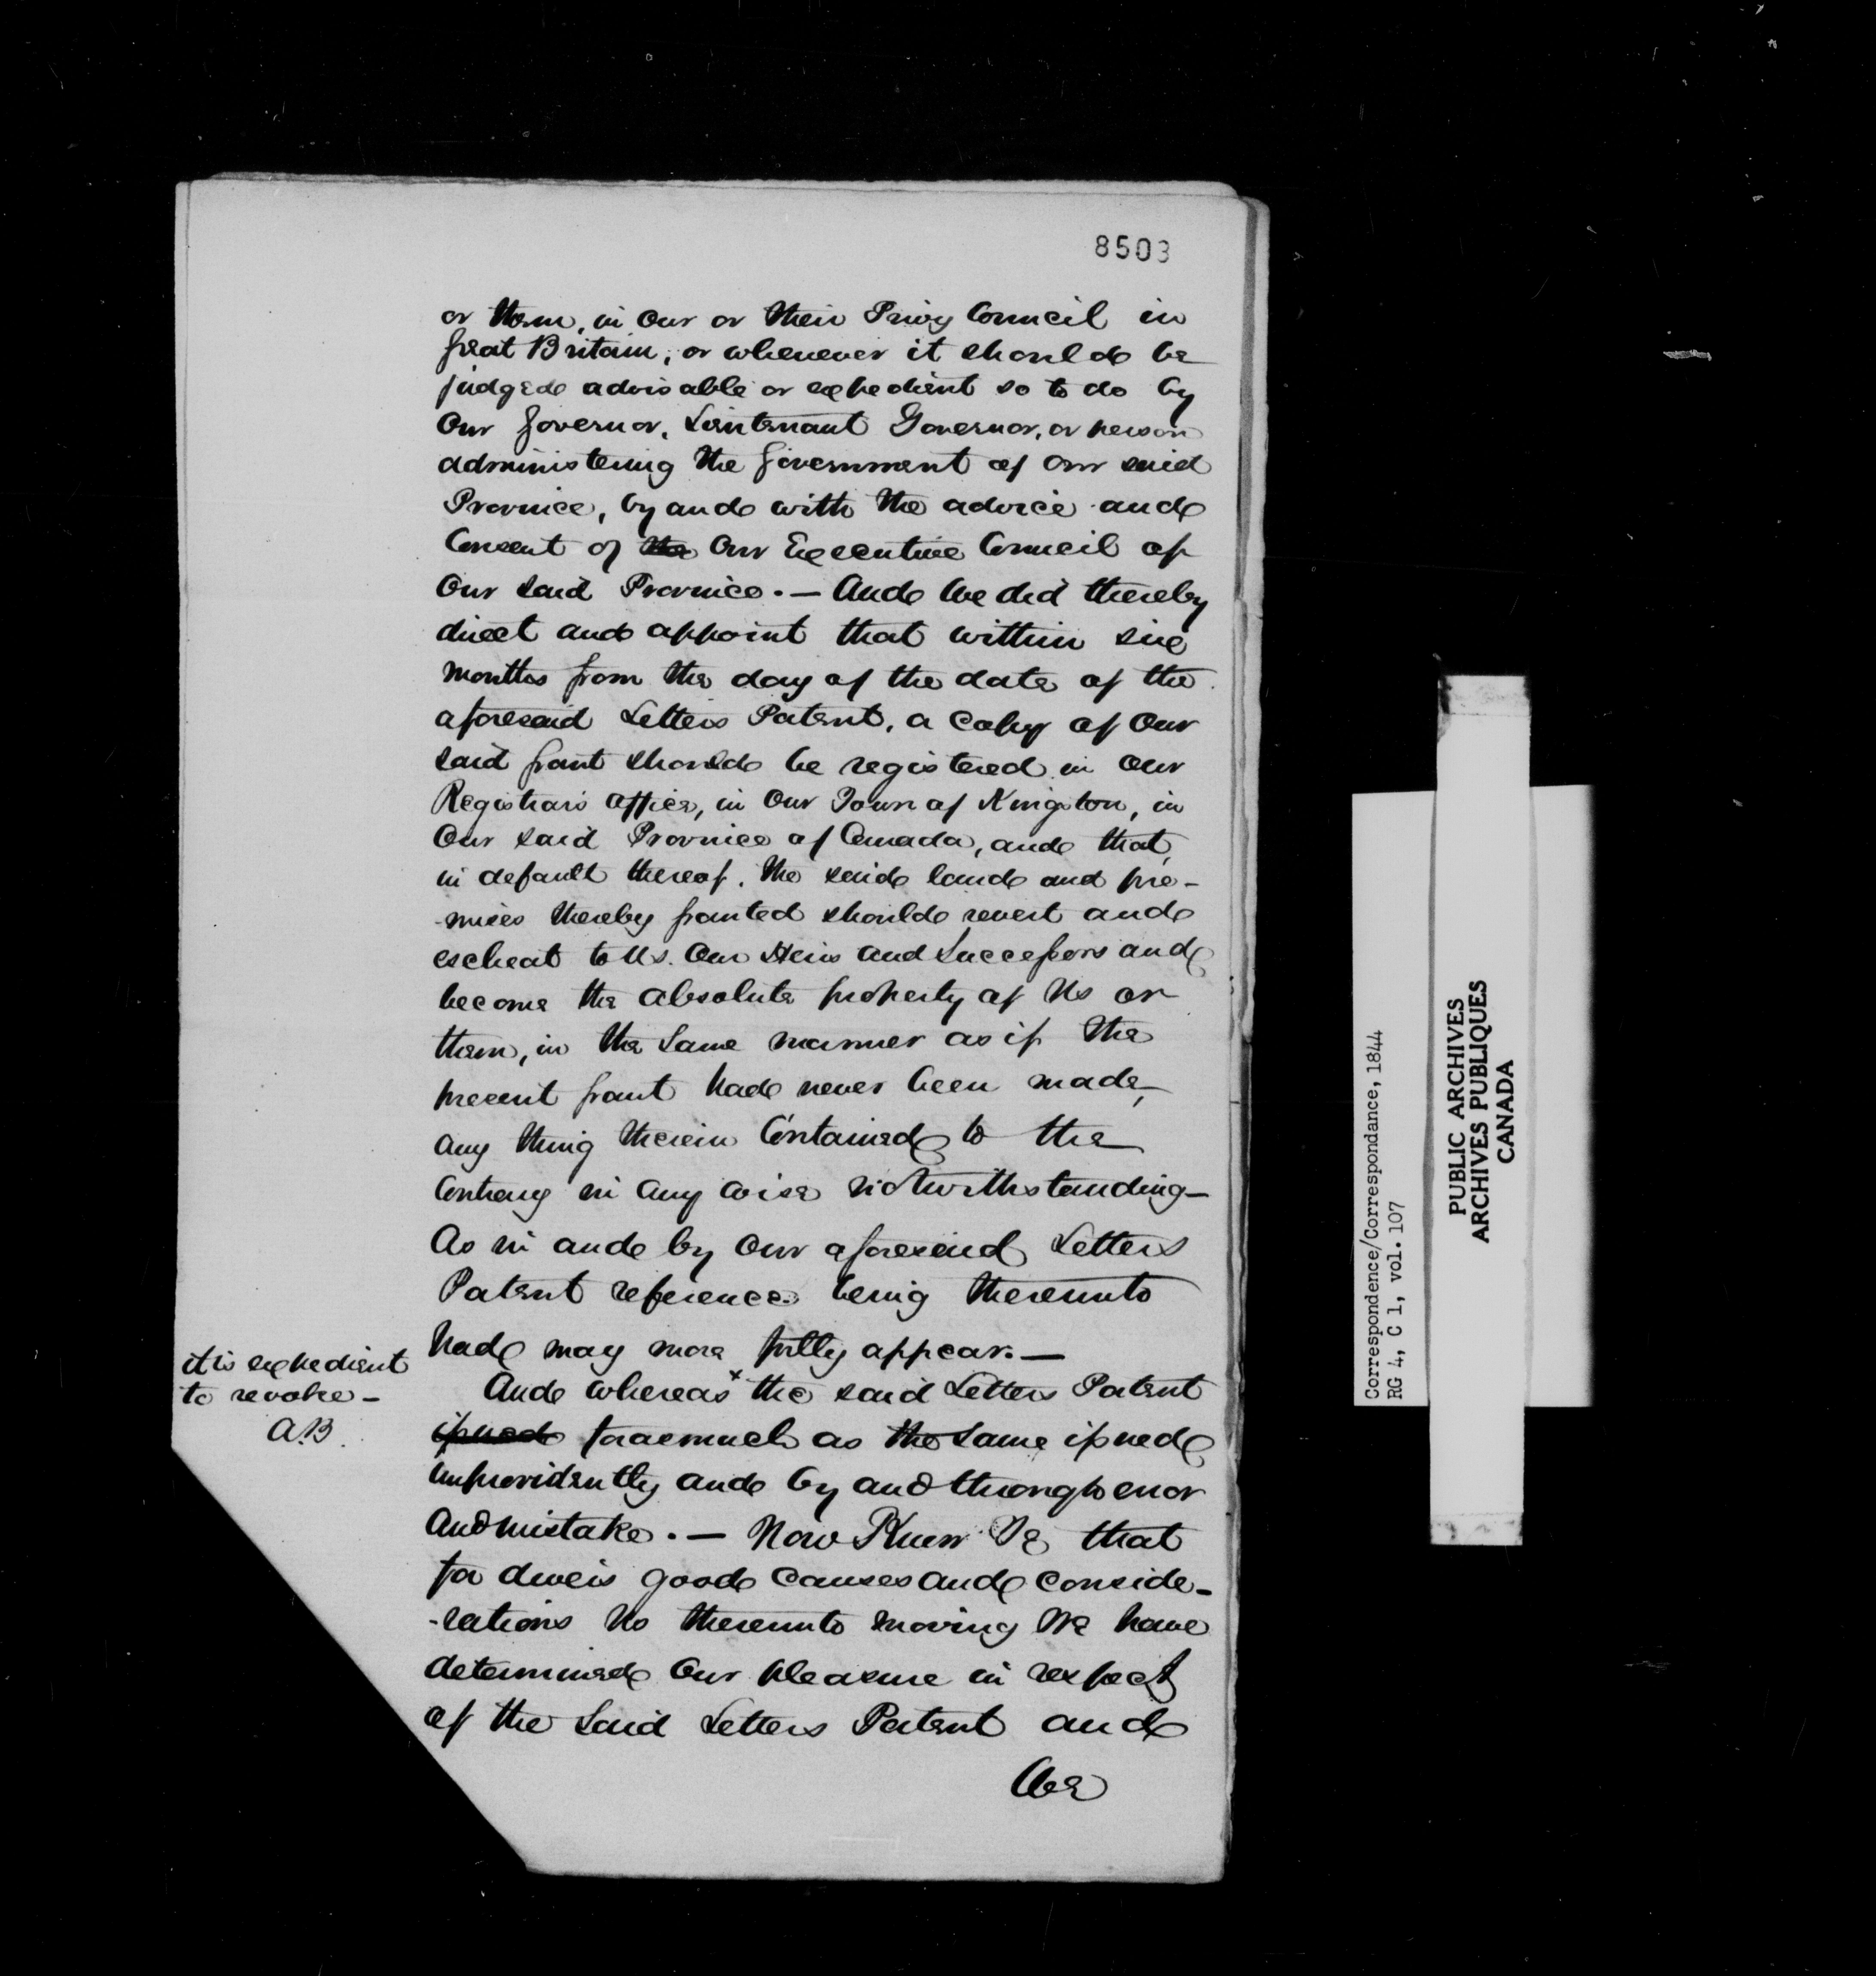 8503
or them, in Our or their Privy Council in
Great Britain, or whenever it should be
judged advisable or expedient so to do by
Our Governor, Lieutenant Governor, or person
administering the Government of Our said
Province, by and with the advice and
Consent of the Our Executive Council of
Our said Province. — And We did thereby
direct and appoint that within six
months from the day of the date of the
aforesaid Letters Patent, a copy of Our
said Grant should be registered in Our
Registrar's Office, in Our Town of Kingston, in
Our said Province of Canada, and that,
in default thereof, the said land and pre-
-mises thereby granted should revert and
escheat to Us. Our Heirs and Successors and
become the absolute property of Us or
them, in the same manner as if the
present Grant had never been made,
any thing therein Contained to the
Contrary in any wise notwithstanding—
As in and by Our aforesaid Letters
Patent reference being thereunto
had may more fully appear.—
And whereas x the said Letters Patent
it is expedient
to revoke —
A.B.
issued forasmuch as the same issued
improvidently and by and through error
and mistake. — Now Know Ye that
for divers good Causes and conside-
-rations Us thereunto moving We have
determined Our pleasure in respect
of the said Letters Patent and
We
Correspondence/Correspondance, 1844
RG 4, C 1, vol. 107
PUBLIC ARCHIVES
ARCHIVES PUBLIQUES
CANADA